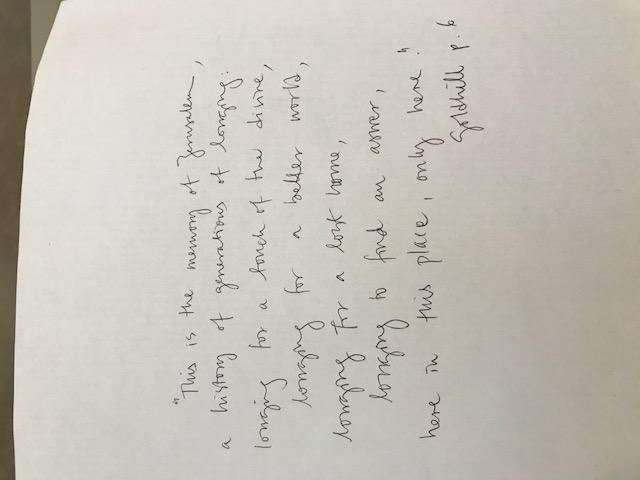 "This is the memory of Jerusalem,
a history of generations of longing:
longing for a touch of the divine,
longing for a better world,
longing for a lost home,
longing to find an answer,
here in this place, only here."
Goldhill p. 6